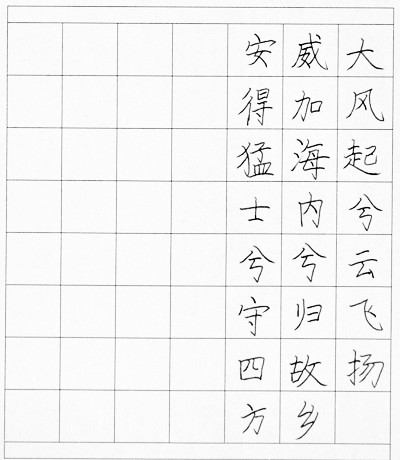 大风起兮云飞扬
威加海内兮归故乡
安得猛士兮守四方